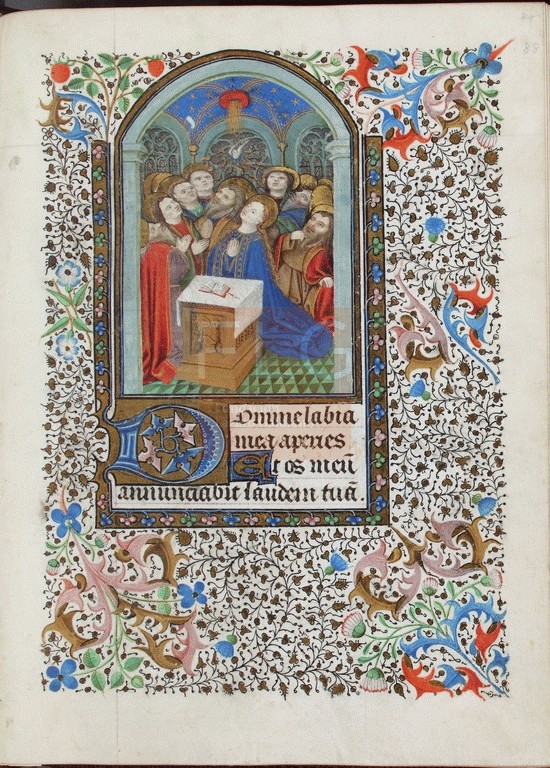 Domine labia
mea aperies
Et os meū
annunciabit laudem tuā.
88